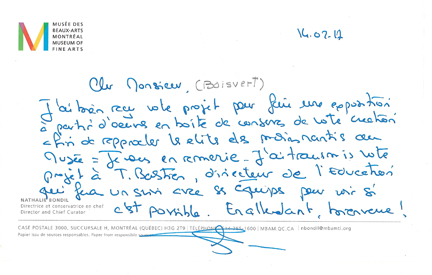 M
MUSÉE DES
BEAUX-ARTS
MONTRÉAL
MUSEUM OF
FINE ARTS
14.02.12
Cher Monsieur, (Boisvert)
J'ai bien reçu votre projet pour faire une exposition
à partir d'oeuvres en boîte de conserves de votre création
afin de rapprocher l'élite des moins nantis au
Musée = Je vous en remercie. J'ai transmis votre
projet à T. Bastien, directeur de l'Education
qui fera un suivi avec ses équipes pour voir si
c'est possible. En attendant, bienvenue!
NATHALIE BONDIL
Directrice et conservatrice en chef
Director and Chief Curator
CASE POSTALE 3000, SUCCURSALE H, MONTRÉAL (QUÉBEC) H3G 2T9 | TÉLÉPHONE 1600 | MBAM.QC.CA | nbondil@mbamtl.org
Papier issu de sources responsables. Paper from responsible